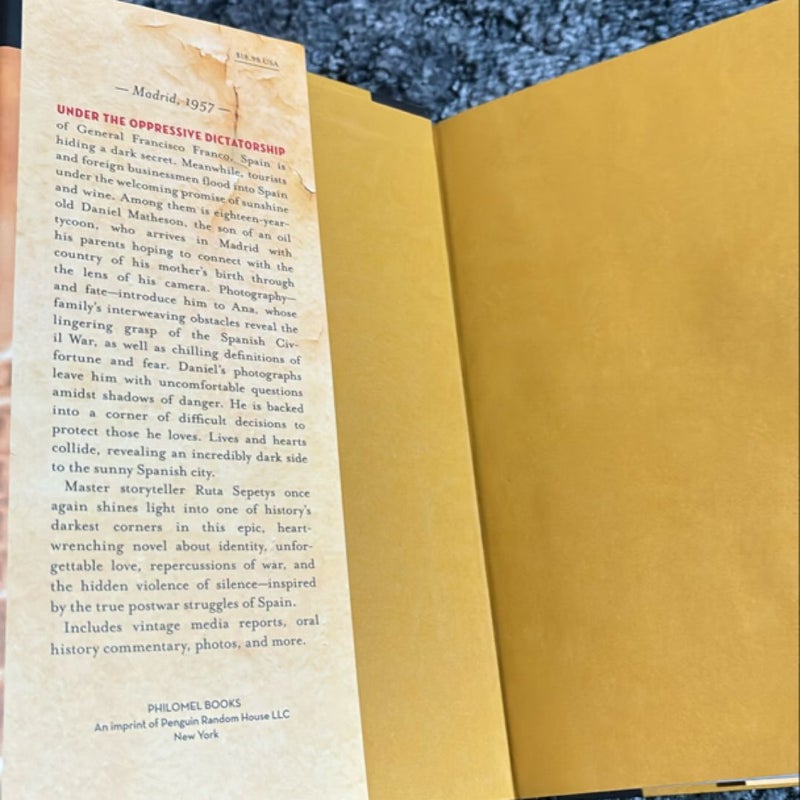 $18.99 USA
— Madrid, 1957 —
UNDER THE OPPRESSIVE DICTATORSHIP
of General Francisco Franco, Spain is
hiding a dark secret. Meanwhile, tourists
and foreign businessmen flood into Spain
under the welcoming promise of sunshine
and wine. Among them is eighteen-year-
old Daniel Matheson, the son of an oil
tycoon, who arrives in Madrid with
his parents hoping to connect with the
country of his mother's birth through
the lens of his camera. Photography—
and fate—introduce him to Ana, whose
family's interweaving obstacles reveal the
lingering grasp of the Spanish Civ-
il War, as well as chilling definitions of
fortune and fear. Daniel's photographs
leave him with uncomfortable questions
amidst shadows of danger. He is backed
into a corner of difficult decisions to
protect those he loves. Lives and hearts
collide, revealing an incredibly dark side
to the sunny Spanish city.
Master storyteller Ruta Sepetys once
again shines light into one of history's
darkest corners in this epic, heart-
wrenching novel about identity, unfor-
gettable love, repercussions of war, and
the hidden violence of silence—inspired
by the true postwar struggles of Spain.
Includes vintage media reports, oral
history commentary, photos, and more.
PHILOMEL BOOKS
An imprint of Penguin Random House LLC
New York